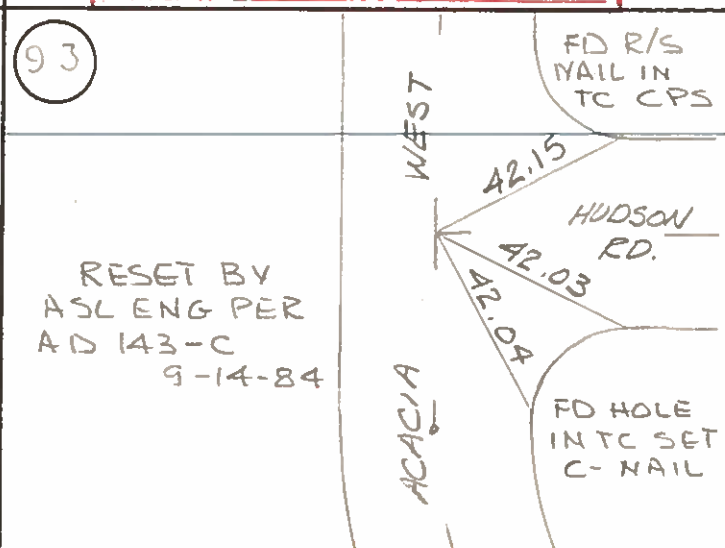 93
FD R/S
NAIL IN
TC CPS
WEST
42.15
HUDSON
RD.
42.03
42.04
RESET BY
ASL ENG PER
AD 143-C
9-14-84
ACACIA
FD HOLE
IN TC SET
C-NAIL